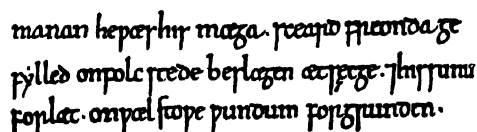 manan he pæs his mæga. sceard freonda ge
fẏlled onfolc stede beslægen ætsęcge. ⁊his sunu
forlæt. onpæl stope pundum forgrunden.